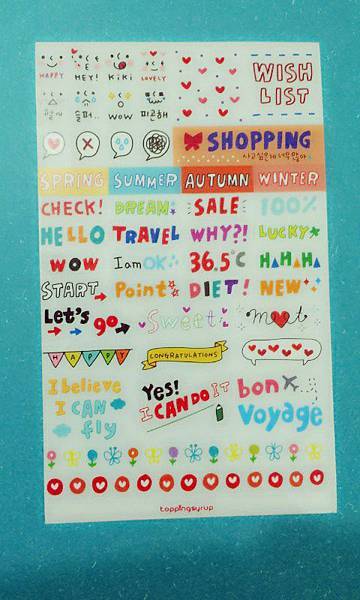 HAPPY HEY! KiKi LOVELY
WISH
LIST
WOW 피곤해
SHOPPING
사고싶은게 너무많아
SPRING SUMMER AUTUMN WINTER
CHECK! DREAM SALE 100%
HELLO TRAVEL WHY?! LUCKY
WOW I am OK 36.5°C HAHAHA
START Point DIET! NEW
Let's go Sweet meet
HAPPY CONGRATULATIONS
I believe
I CAN
fly
Yes!
I CAN DO IT
bon
Voyage
toppingsyrup